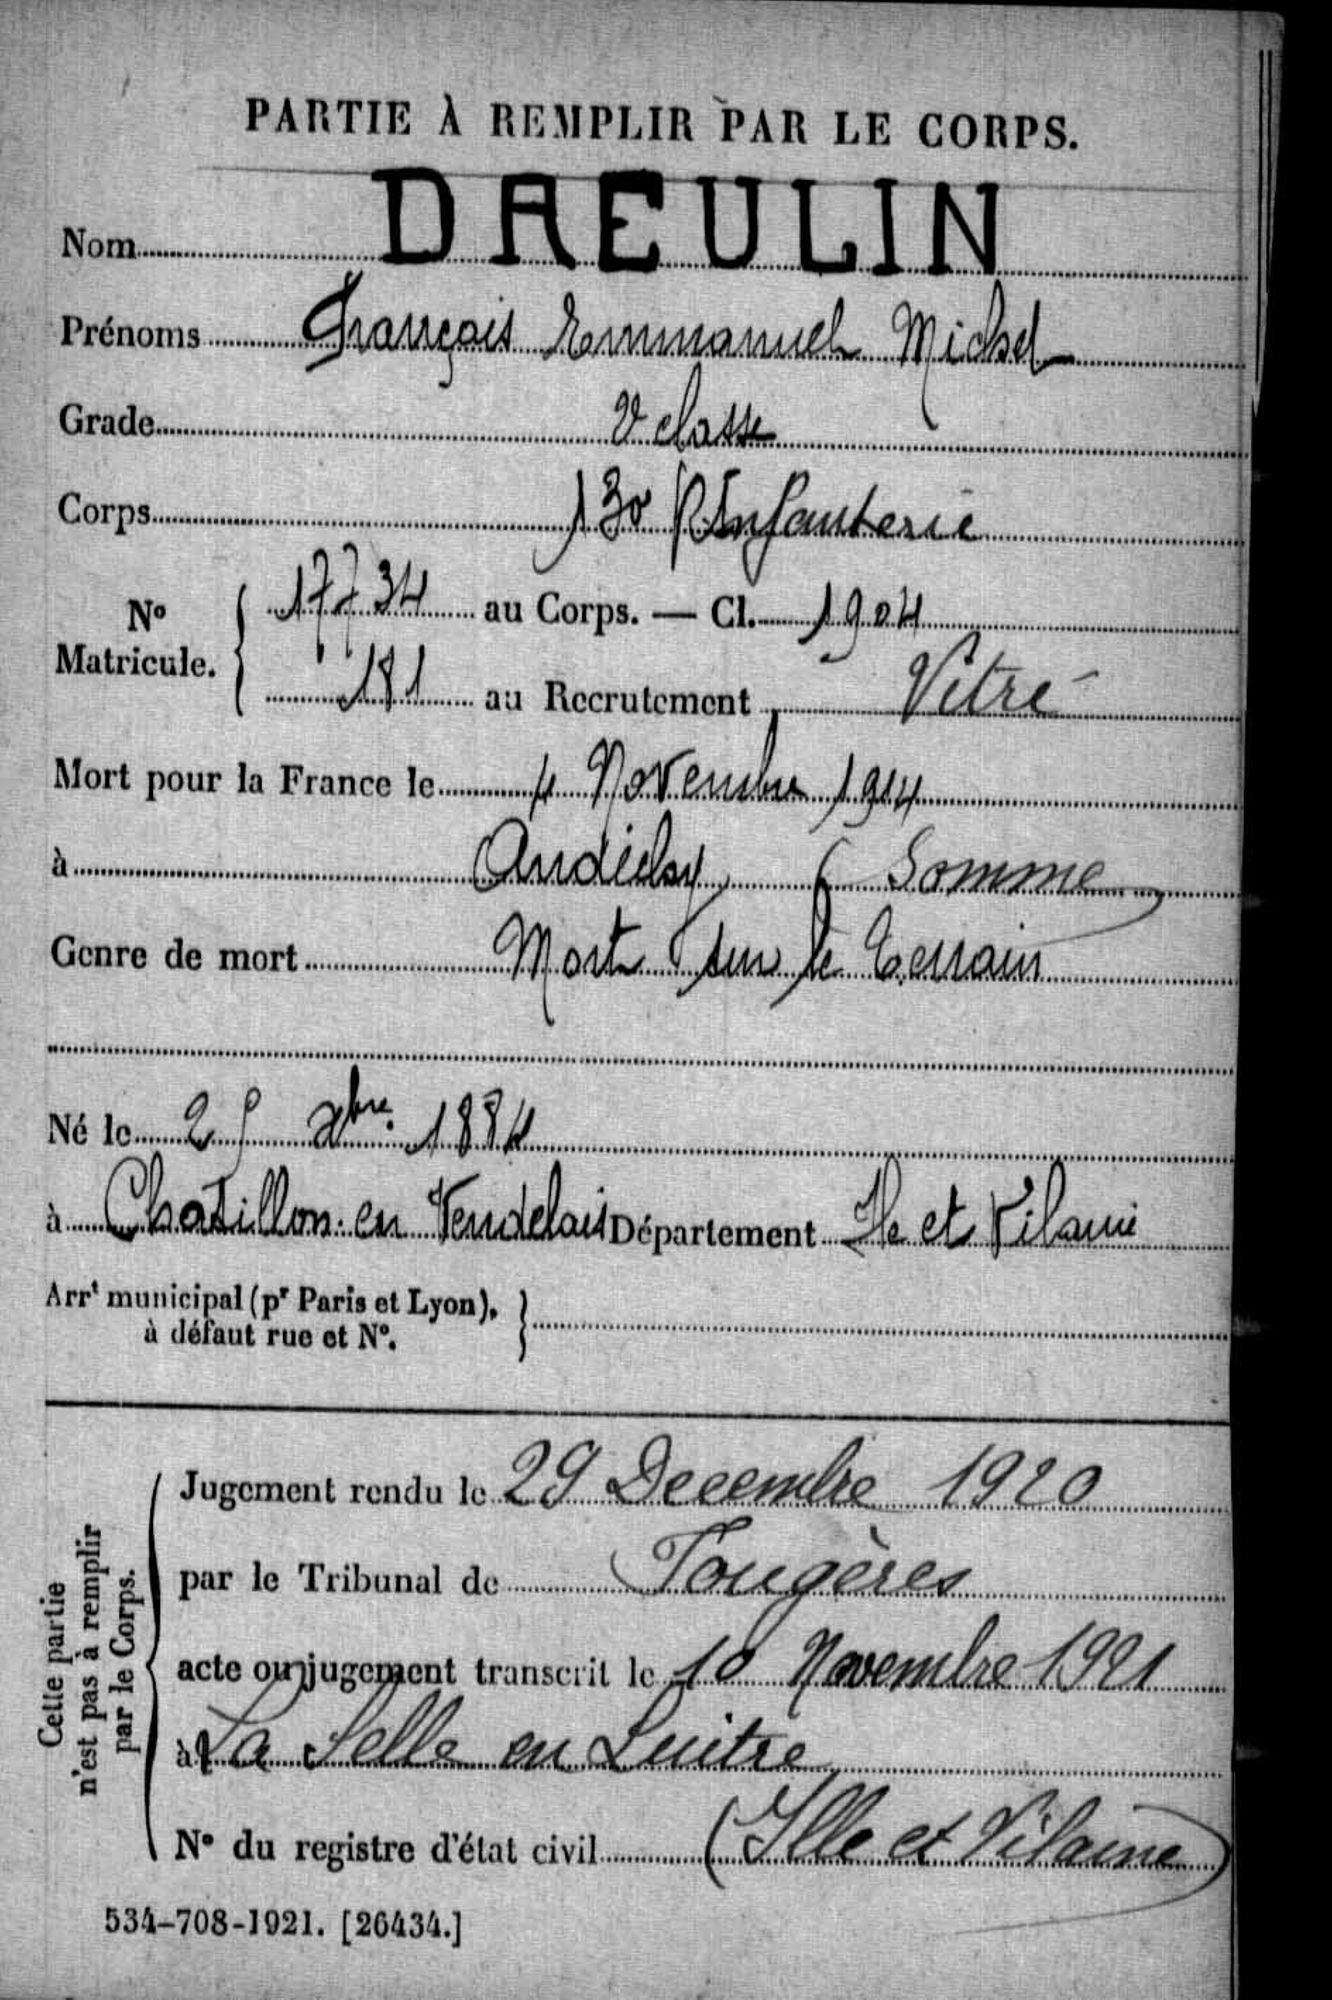 PARTIE À REMPLIR PAR LE CORPS.
Nom DAEULIN
Prénoms François Emmanuel Michel
Grade 2e classe
Corps 130 R Infanterie
No Matricule. 17734 au Corps. — Cl. 1904
181 au Recrutement Vitré
Mort pour la France le 4 Novembre 1914
à Andéchy (Somme
Genre de mort Mort sur le terrain
Né le 25 xbre 1884
à Chatillon en Vendelais Département Ile et Vilaine
Arrt municipal (pr Paris et Lyon), à défaut rue et No.
Cette partie n'est pas à remplir par le Corps.
Jugement rendu le 29 Decembre 1920
par le Tribunal de Fougères
acte ou jugement transcrit le 10 Novembre 1921
à La Selle en Luitre
No du registre d'état civil (Ille et Vilaine)
534-708-1921. [26434.]